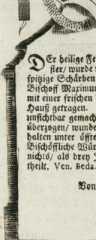 DEr heilige Fe
ster/ wurde
spitzige Schärben
Bischoff Maximum
mit einer frischen
Hauß getragen.
unsichtbar gemach
überzogen/ wunde
halten unter öffr
Bischöffliche Wür
nichts/ als drey
theilt. Ven. Beda.
Von